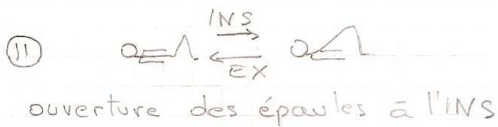 11
INS
EX
ouverture des épaules à l'INS